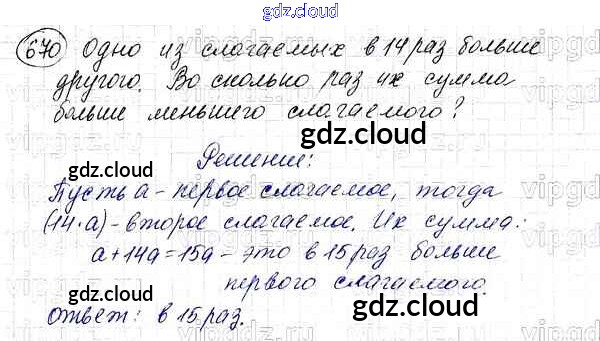 gdz.cloud
670 Одно из слагаемых в 14 раз больше
другого. Во сколько раз их сумма
больше меньшего слагаемого?
gdz.cloud
gdz.cloud
Решение:
Пусть а - первое слагаемое, тогда
(14·а) - второе слагаемое. Их сумма:
а+14а=15а - это в 15 раз больше
первого слагаемого.
gdz.cloud
gdz.cloud
Ответ: в 15 раз.